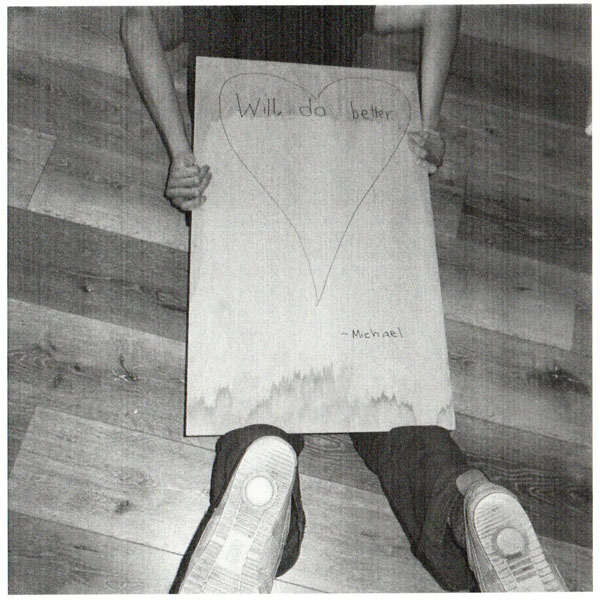 Will do better
-Michael